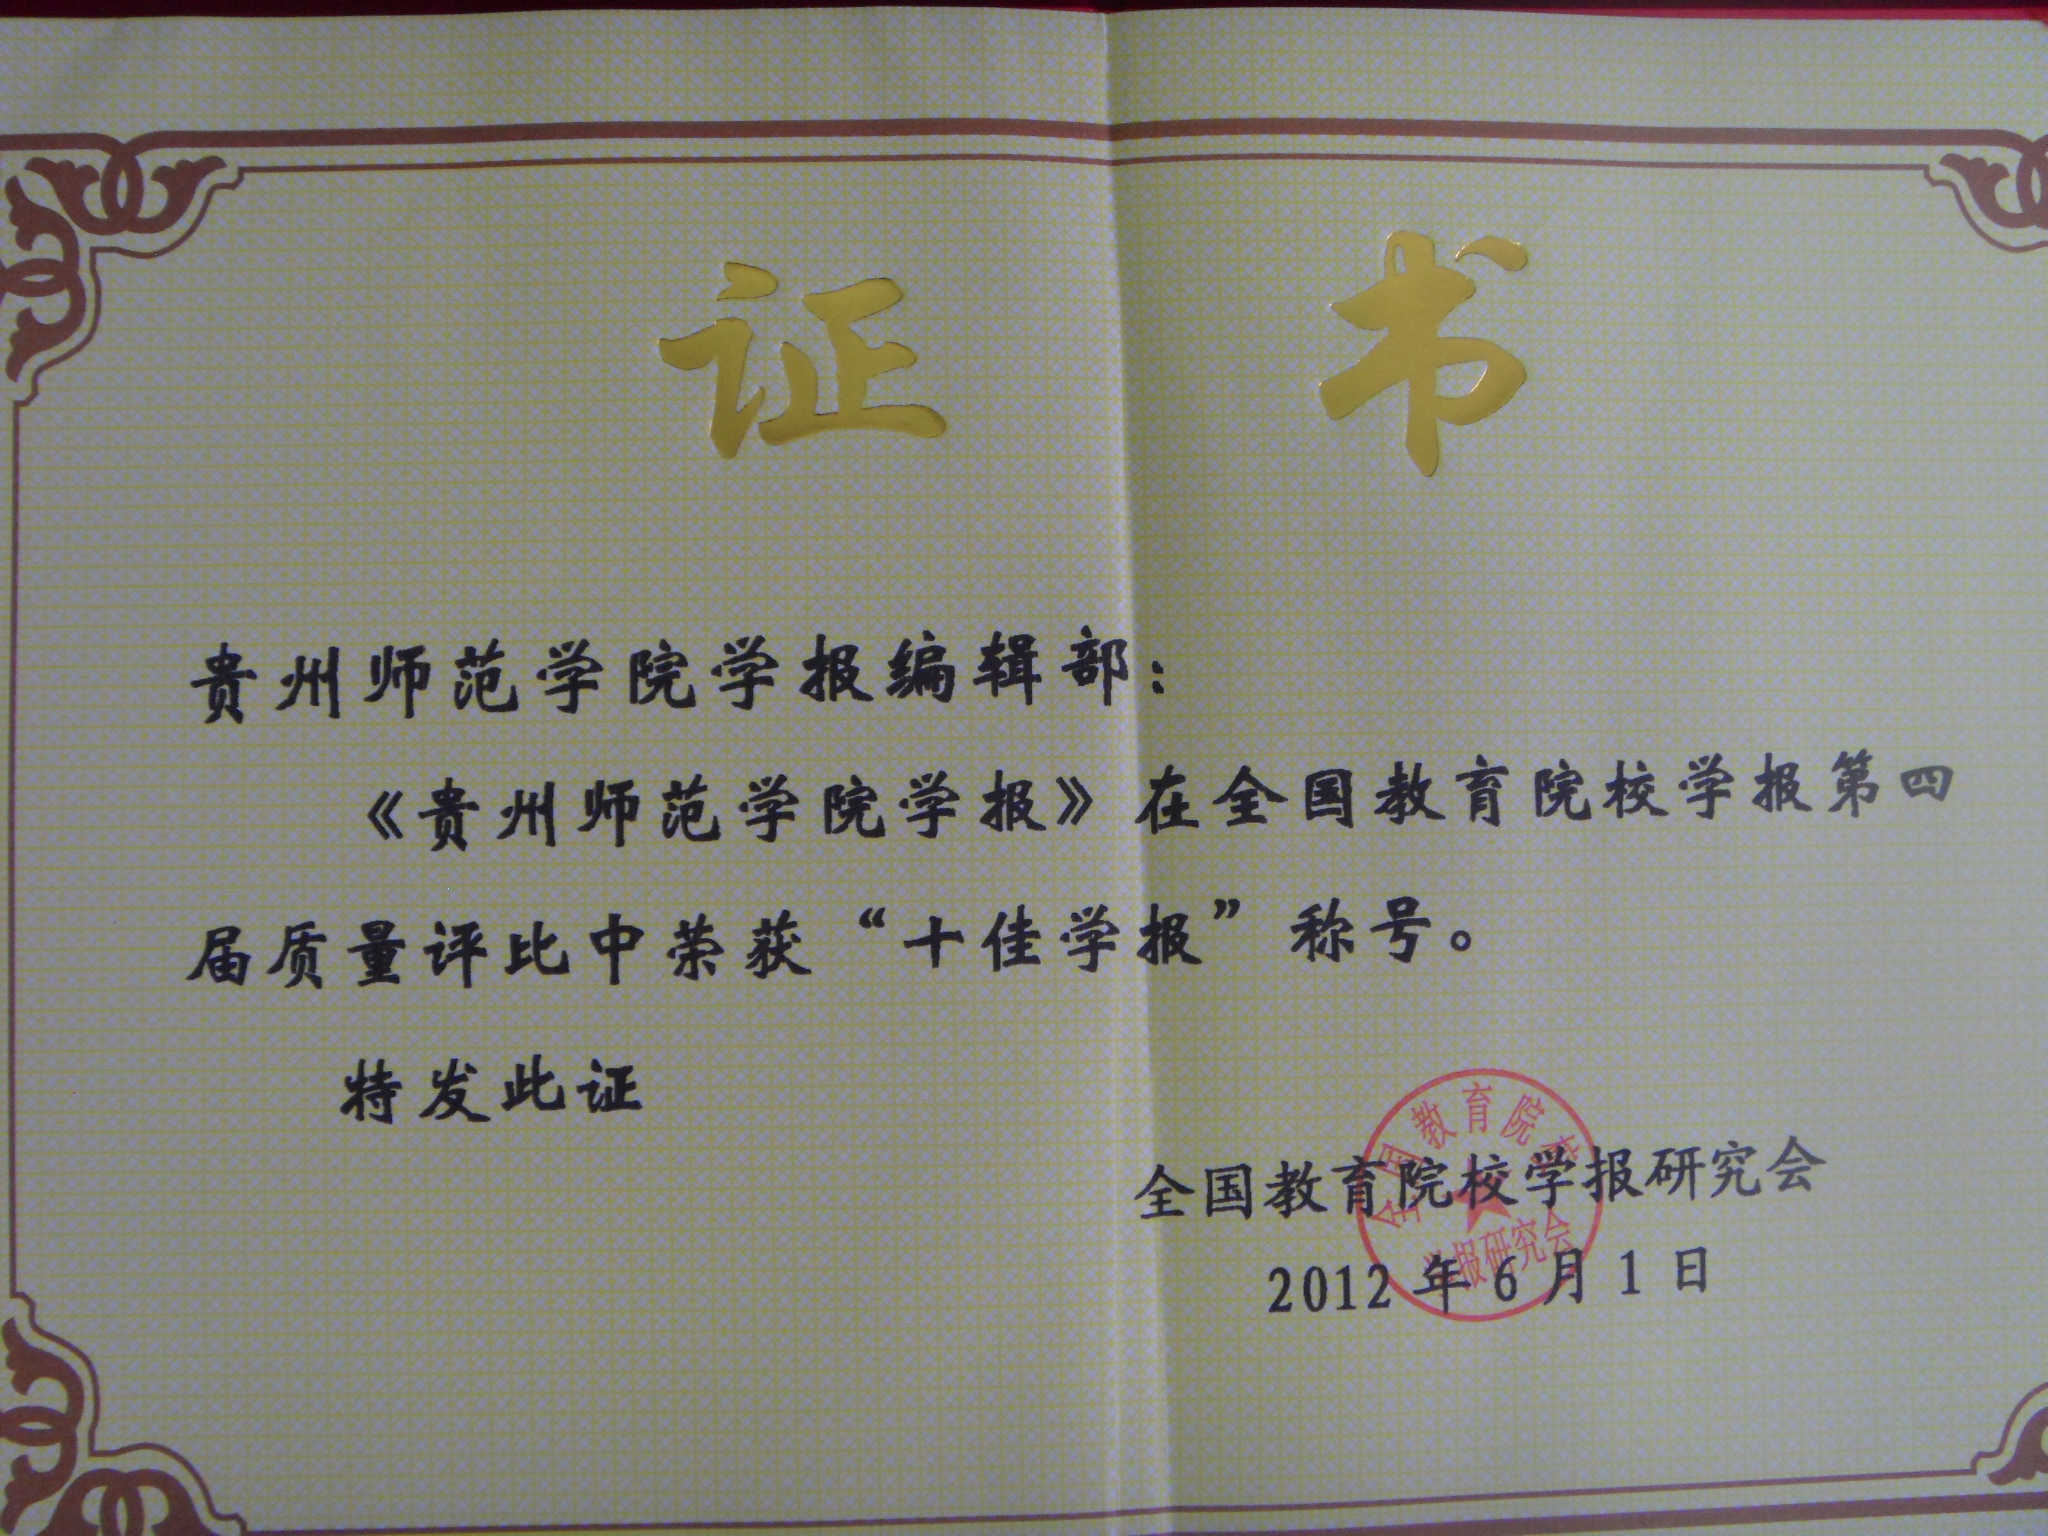 证书
贵州师范学院学报编辑部：
《贵州师范学院学报》在全国教育院校学报第四
届质量评比中荣获“十佳学报”称号。
特发此证
全国教育院校学报研究会
2012年6月1日
全国教育院校
学报研究会